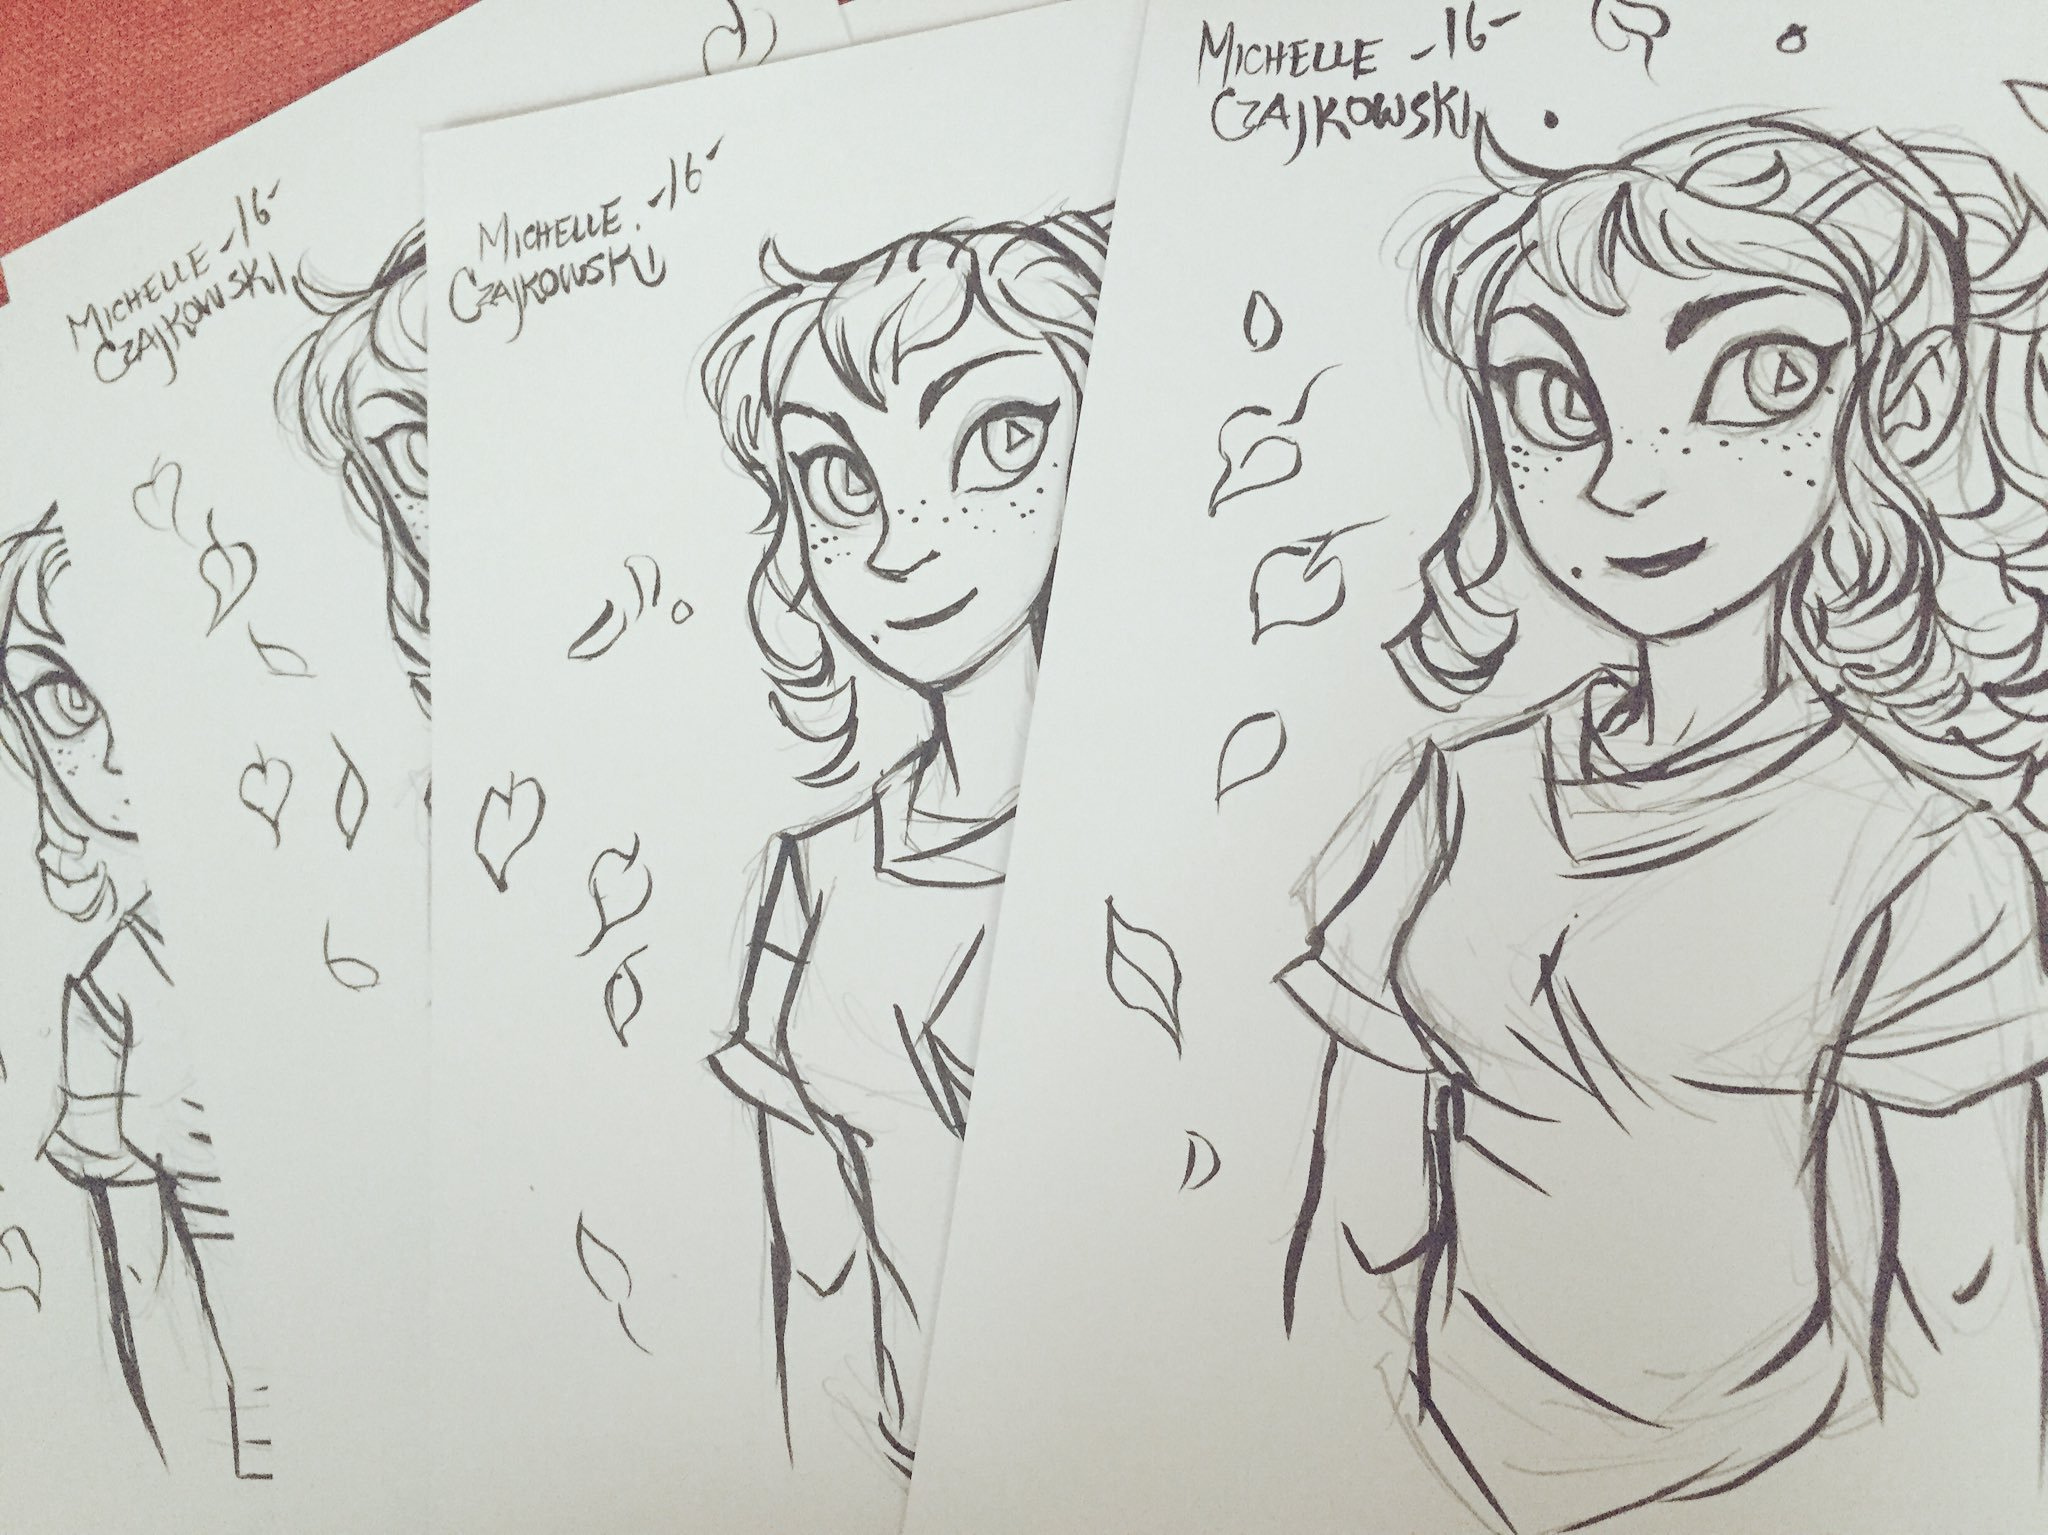 MICHELLE -16-
CZAJKOWSKI
MICHELLE. -16-
CZAJKOWSKI
MICHELLE -16-
CZAJKOWSKI